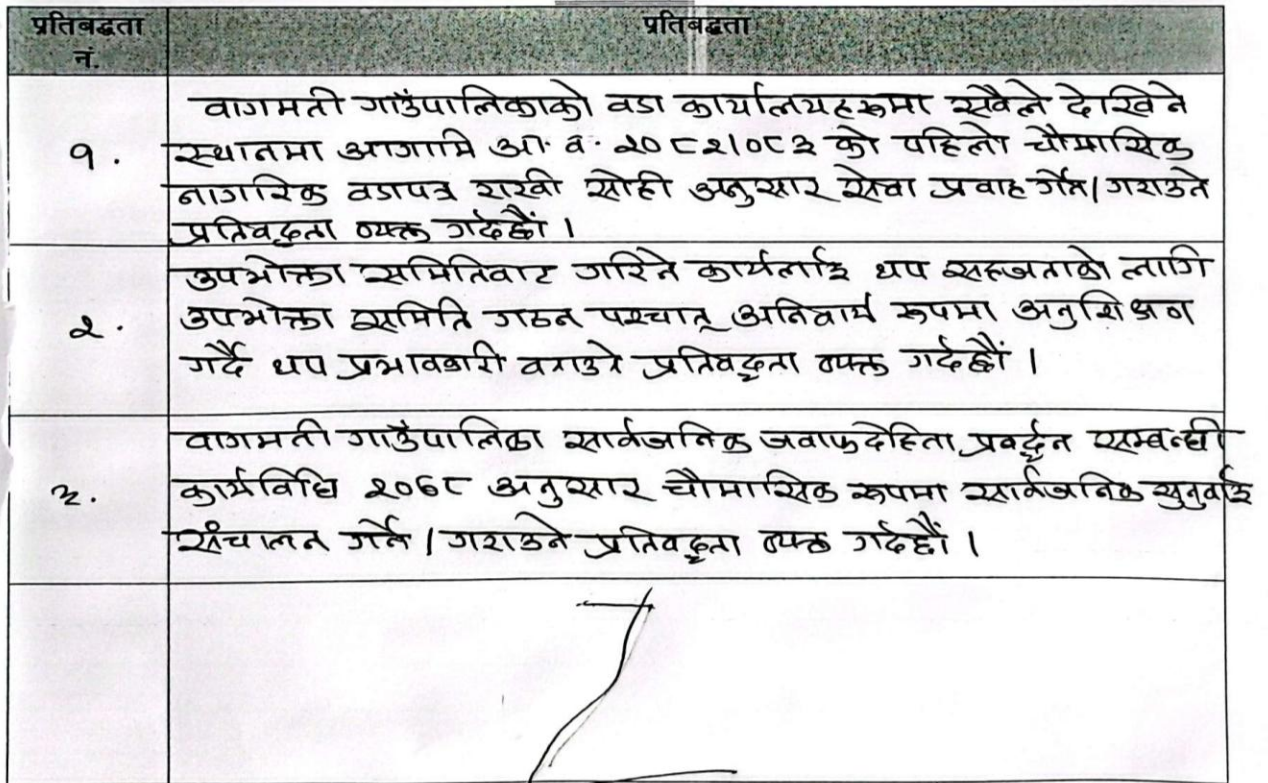 प्रतिबद्धता नं. प्रतिबद्धता
वागमती गाउँपालिकाको वडा कार्यालयहरूमा सवैले देखिने
१. स्थानमा आगामि आ. व. २०८२/०८३ को पहिलो चौमासिक
नागरिक वडापत्र राखी सोही अनुसार सेवा प्रवाह गर्ने/गराउने
प्रतिवद्धता व्यक्त गर्दछौं ।
उपभोक्ता समितिवाट गरिने कार्यलाई थप सहजताको लागि
२. उपभोक्ता समिति गठन पश्चात् अनिवार्य रूपमा अनुशिक्षण
गर्दै थप प्रभावकारी वनाउने प्रतिवद्धता व्यक्त गर्दछौं ।
वागमती गाउँपालिका सार्वजनिक जवाफदेहिता प्रवर्द्धन सम्बन्धी
३. कार्यविधि २०७८ अनुसार चौमासिक रूपमा सार्वजनिक सुनुवाई
संचालन गर्ने/गराउने प्रतिवद्धता व्यक्त गर्दछौं ।